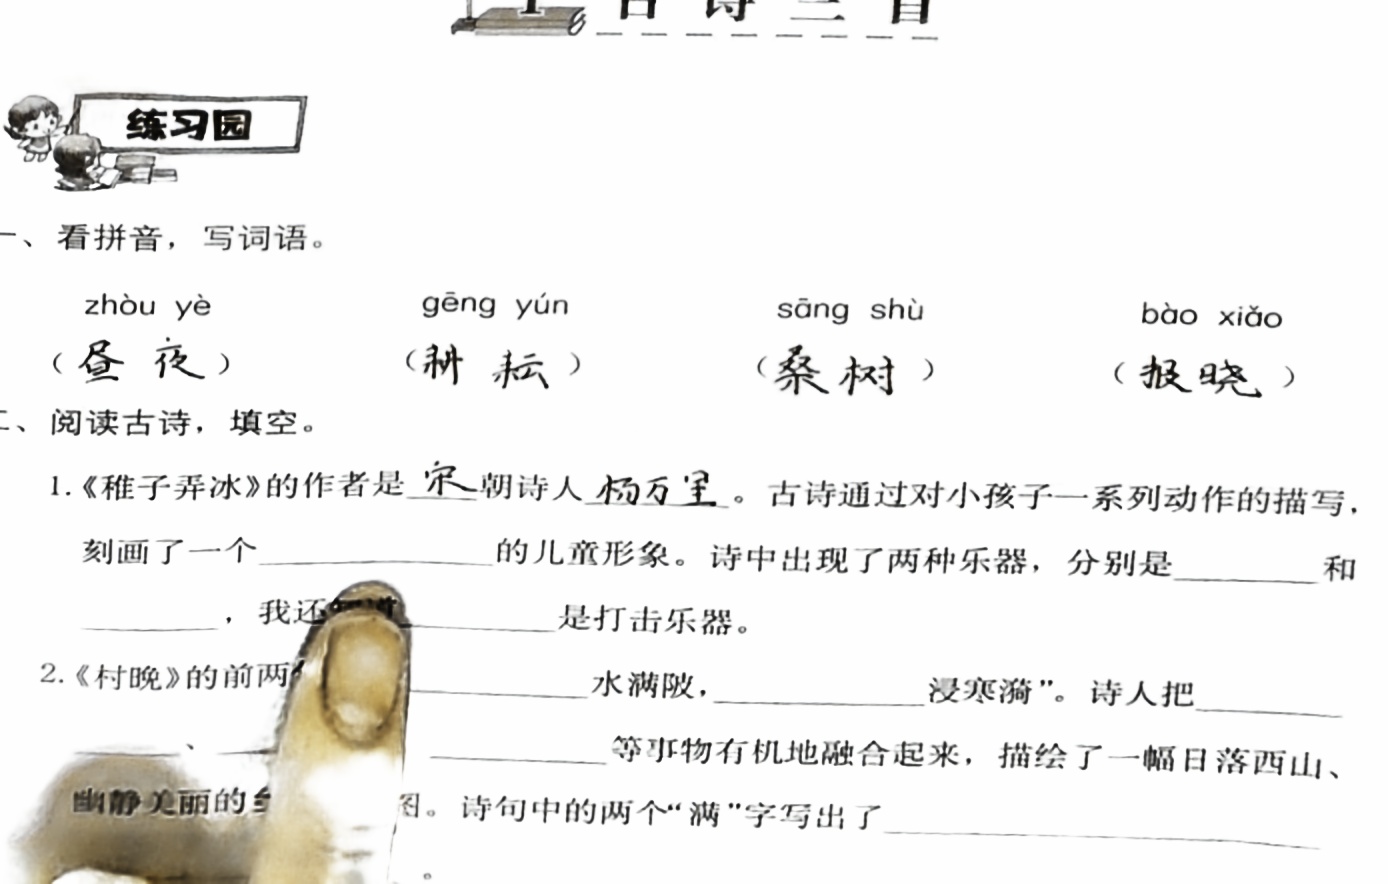 1 古诗三首
练习园
一、看拼音，写词语。
zhòu yè gēng yún sāng shù bào xiǎo
（昼夜） （耕耘） （桑树） （报晓）
二、阅读古诗，填空。
1.《稚子弄冰》的作者是宋朝诗人杨万里。古诗通过对小孩子一系列动作的描写，
刻画了一个______的儿童形象。诗中出现了两种乐器，分别是______和
______，我还知道______是打击乐器。
2.《村晚》的前两______水满陂，______浸寒漪”。诗人把______
______、______ ______等事物有机地融合起来，描绘了一幅日落西山、
幽静美丽的 图。诗句中的两个“满”字写出了______
。